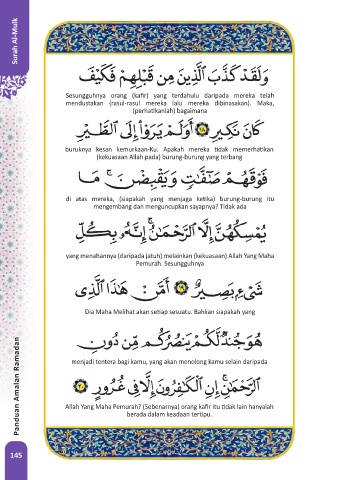 Surah Al-Mulk
وَلَقَدْ كَذَّبَ ٱلَّذِينَ مِن قَبْلِهِمْ فَكَيْفَ
Sesungguhnya orang (kafir) yang terdahulu daripada mereka telah
mendustakan (rasul-rasul mereka lalu mereka dibinasakan). Maka,
(perhatikanlah) bagaimana
كَانَ نَكِيرِ ١٨ أَوَلَمْ يَرَوْا۟ إِلَى ٱلطَّيْرِ
buruknya kesan kemurkaan-Ku. Apakah mereka tidak memerhatikan
(kekuasaan Allah pada) burung-burung yang terbang
فَوْقَهُمْ صَـٰٓفَّـٰتٍ وَيَقْبِضْنَ ۚ مَا
di atas mereka, (siapakah yang menjaga ketika) burung-burung itu
mengembang dan menguncupkan sayapnya? Tidak ada
يُمْسِكُهُنَّ إِلَّا ٱلرَّحْمَـٰنُ ۚ إِنَّهُۥ بِكُلِّ
yang menahannya (daripada jatuh) melainkan (kekuasaan) Allah Yang Maha
Pemurah. Sesungguhnya
شَىْءٍۭ بَصِيرٌ ١٩ أَمَّنْ هَـٰذَا ٱلَّذِى
Dia Maha Melihat akan setiap sesuatu. Bahkan siapakah yang
هُوَ جُندٌ لَّكُمْ يَنصُرُكُم مِّن دُونِ
menjadi tentera bagi kamu, yang akan menolong kamu selain daripada
ٱلرَّحْمَـٰنِ ۚ إِنِ ٱلْكَـٰفِرُونَ إِلَّا فِى غُرُورٍ ٢٠
Allah Yang Maha Pemurah? (Sebenarnya) orang kafir itu tidak lain hanyalah
berada dalam keadaan tertipu.
Panduan Amalan Ramadan
145